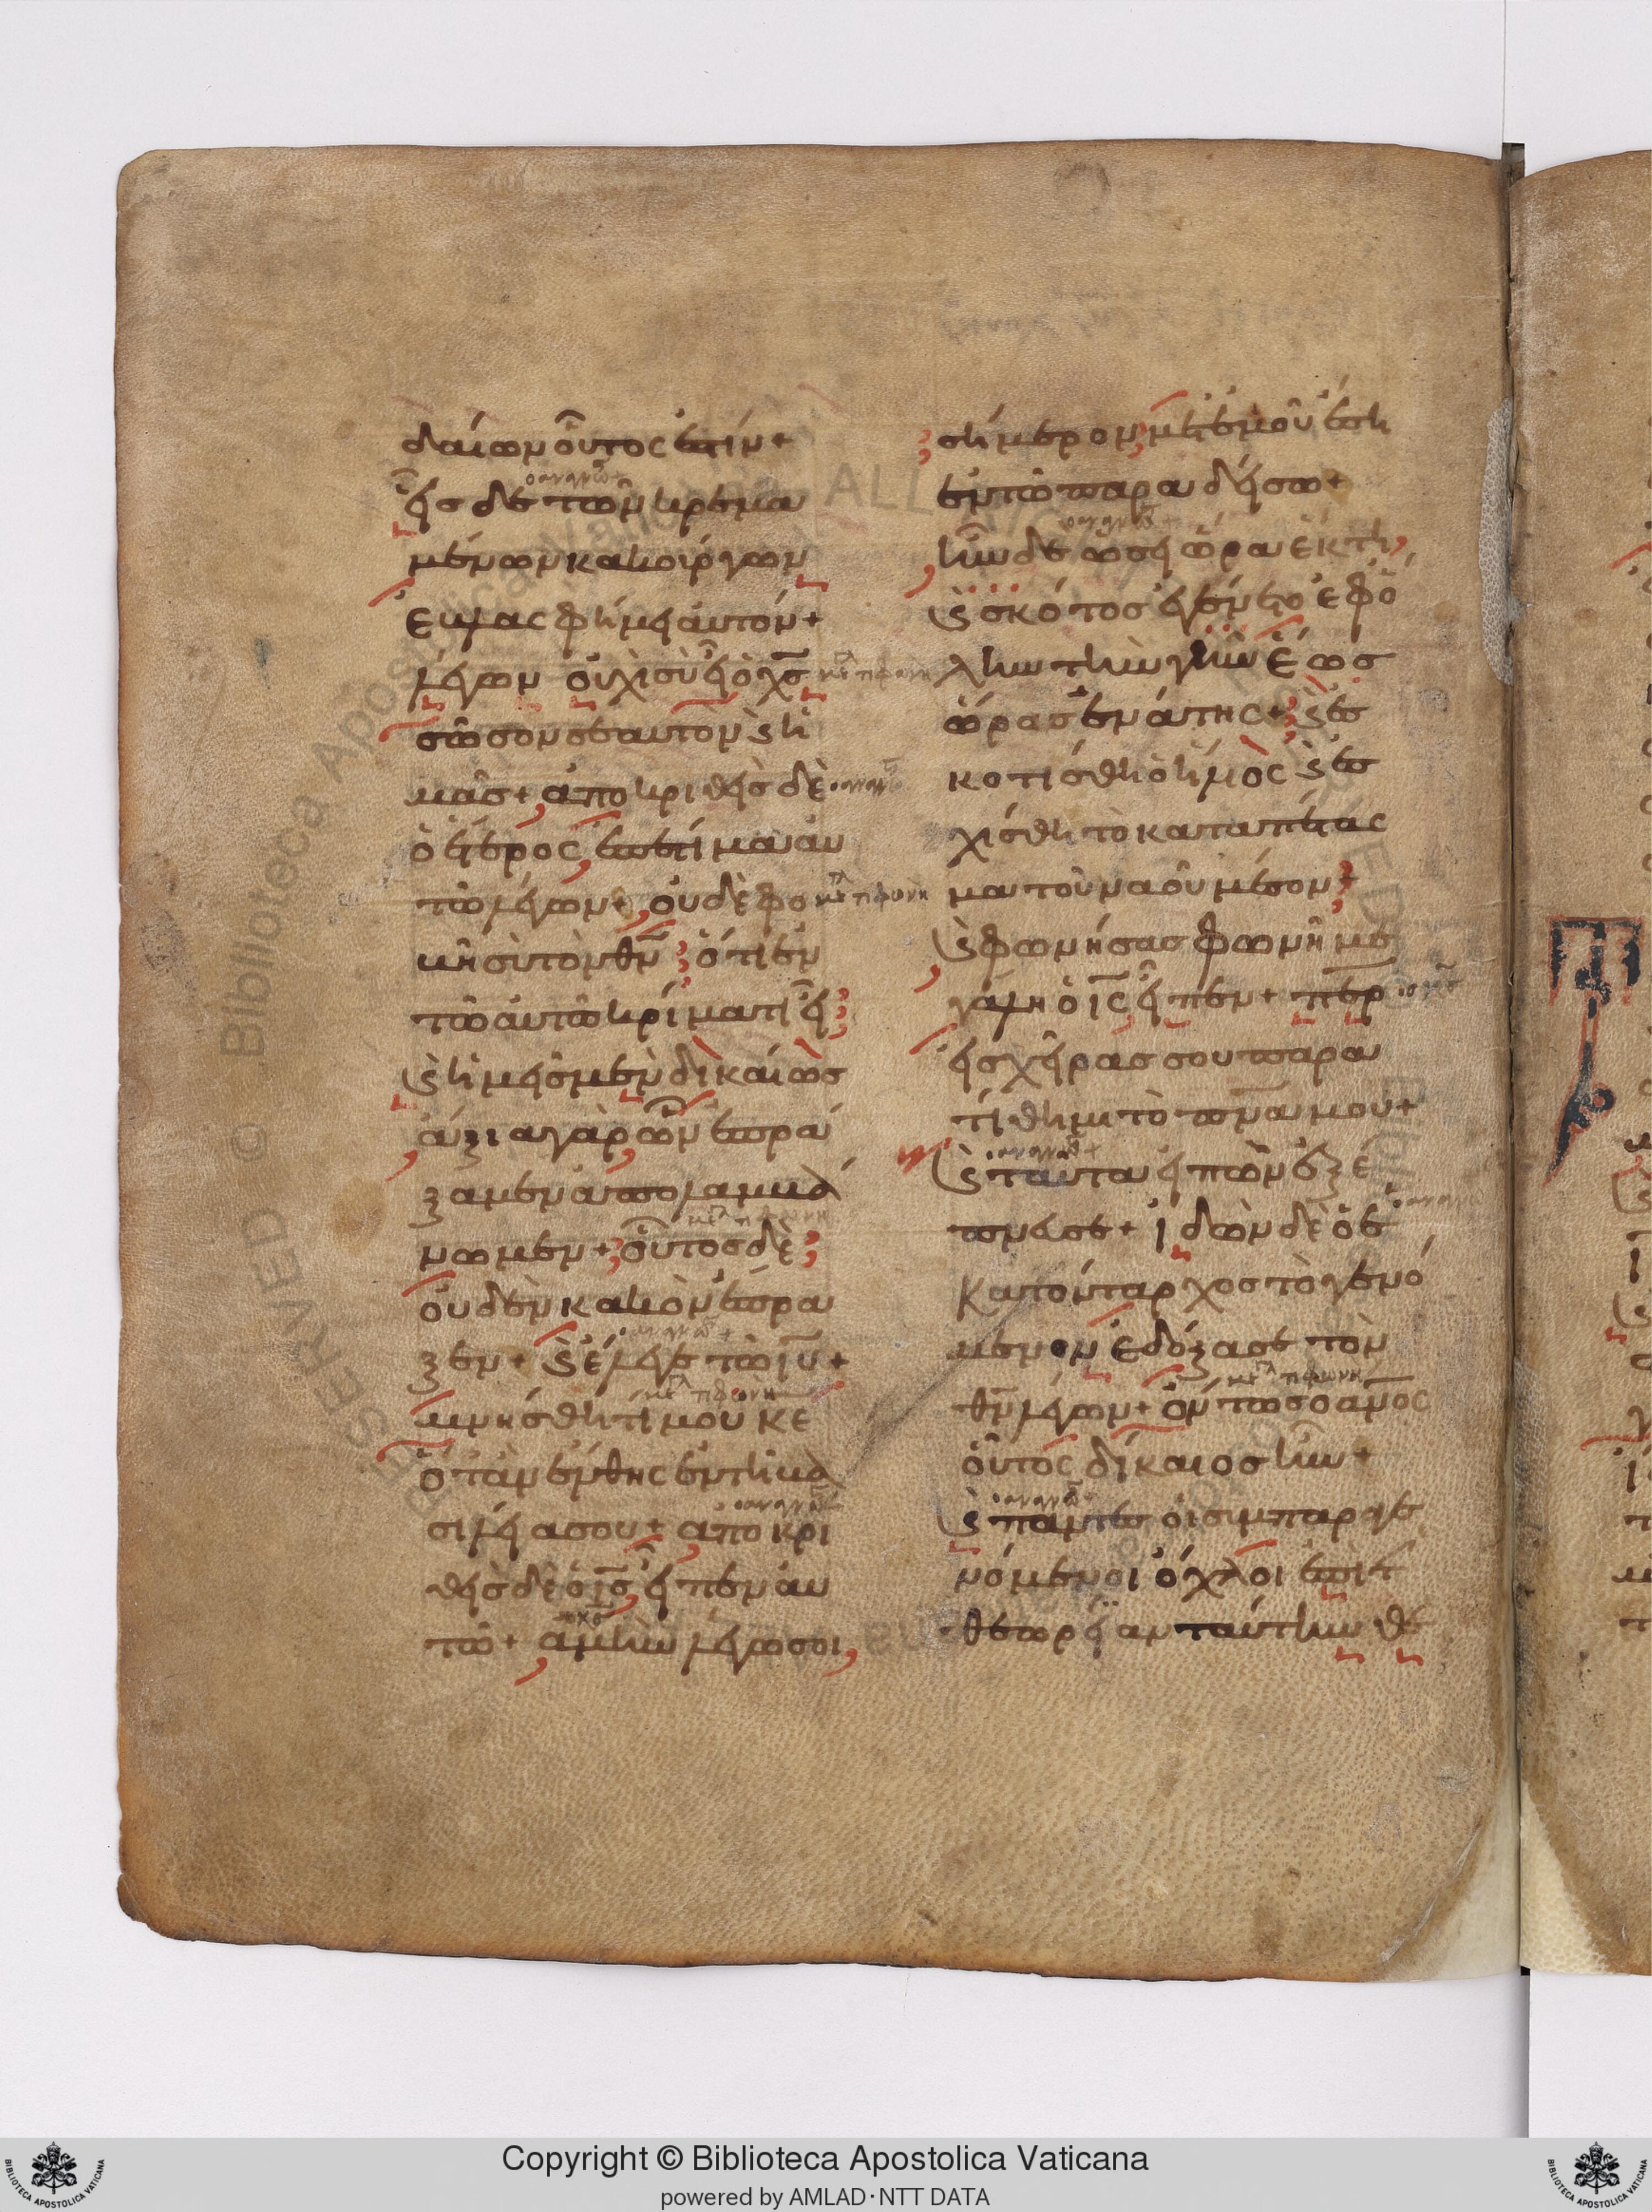 δαίων οὗτος ἐστίν +
εἷς δὲ τῶν κρεμα
μένων κακούργων
ἐψλασφήμει αὐτόν +
λέγων οὐχὶ σὺ εἶ ὁ χς
σῶσον σεαυτὸν ϗ ἡ
μᾶς + ἀποκριθεὶς δὲ
ὁ ἕτερος ἐπετίμα αυ
τῶ λέγων + οὐδὲ φο
βῆ σὺ τὸν θν ὅτι ἐν
τῶ αὐτῶ κρίματι εἶ
ϗ ἡμεῖς μὲν δικαίως
ἄξια γὰρ ὧν ἐπρά
ξαμεν ἀπολαμβά
νωμεν + οὗτος δὲ
οὐδὲν κακὸν ἔπρα
ξεν + ϗ ἔλεγε τῶ ιυ +
μνήσθητί μου κε
ὅταν ἔλθης ἐν τῆ βα
σιλεία σου + αποκρι
θεὶς δὲ ὁ ις εἶπεν αυ
τῶ + αμὴν λέγω σοι
σήμερον μετ' ἐμοῦ ἔση
ἐν τῶ παραδείσω +
ἦν δὲ ὡσεὶ ὥρα ἕκτη
ϗ σκότος ἐγένετο ἐφ' ὅ
λην τὴν γῆν ἕως
ὥρας ἐνάτης + ϗ ἐσ
κοτίσθη ὁ ἥλιος ϗ ἐσ
χίσθη τὸ καταπέτας
μα τοῦ ναοῦ μέσον +
ϗ φωνήσας φωνῆ με
γάλη ὁ ις εἶπεν + περ
εἰς χεῖρας σου παρα
τίθημι τὸ πνα μου +
ϗ ταῦτα εἰπὼν ἐξέ
πνευσε + ἰδὼν δὲ ὁ ἑ
κατόνταρχος τὸ γενό
μενον ἐδόξασε τὸν
θν λέγων + ὄντως ο ανος
οὗτος δίκαιος ἦν +
ϗ πάντες οἱ συμπαραγε
νόμενοι ὄχλοι ἐπὶ τ
θεωρείαν ταύτην θε